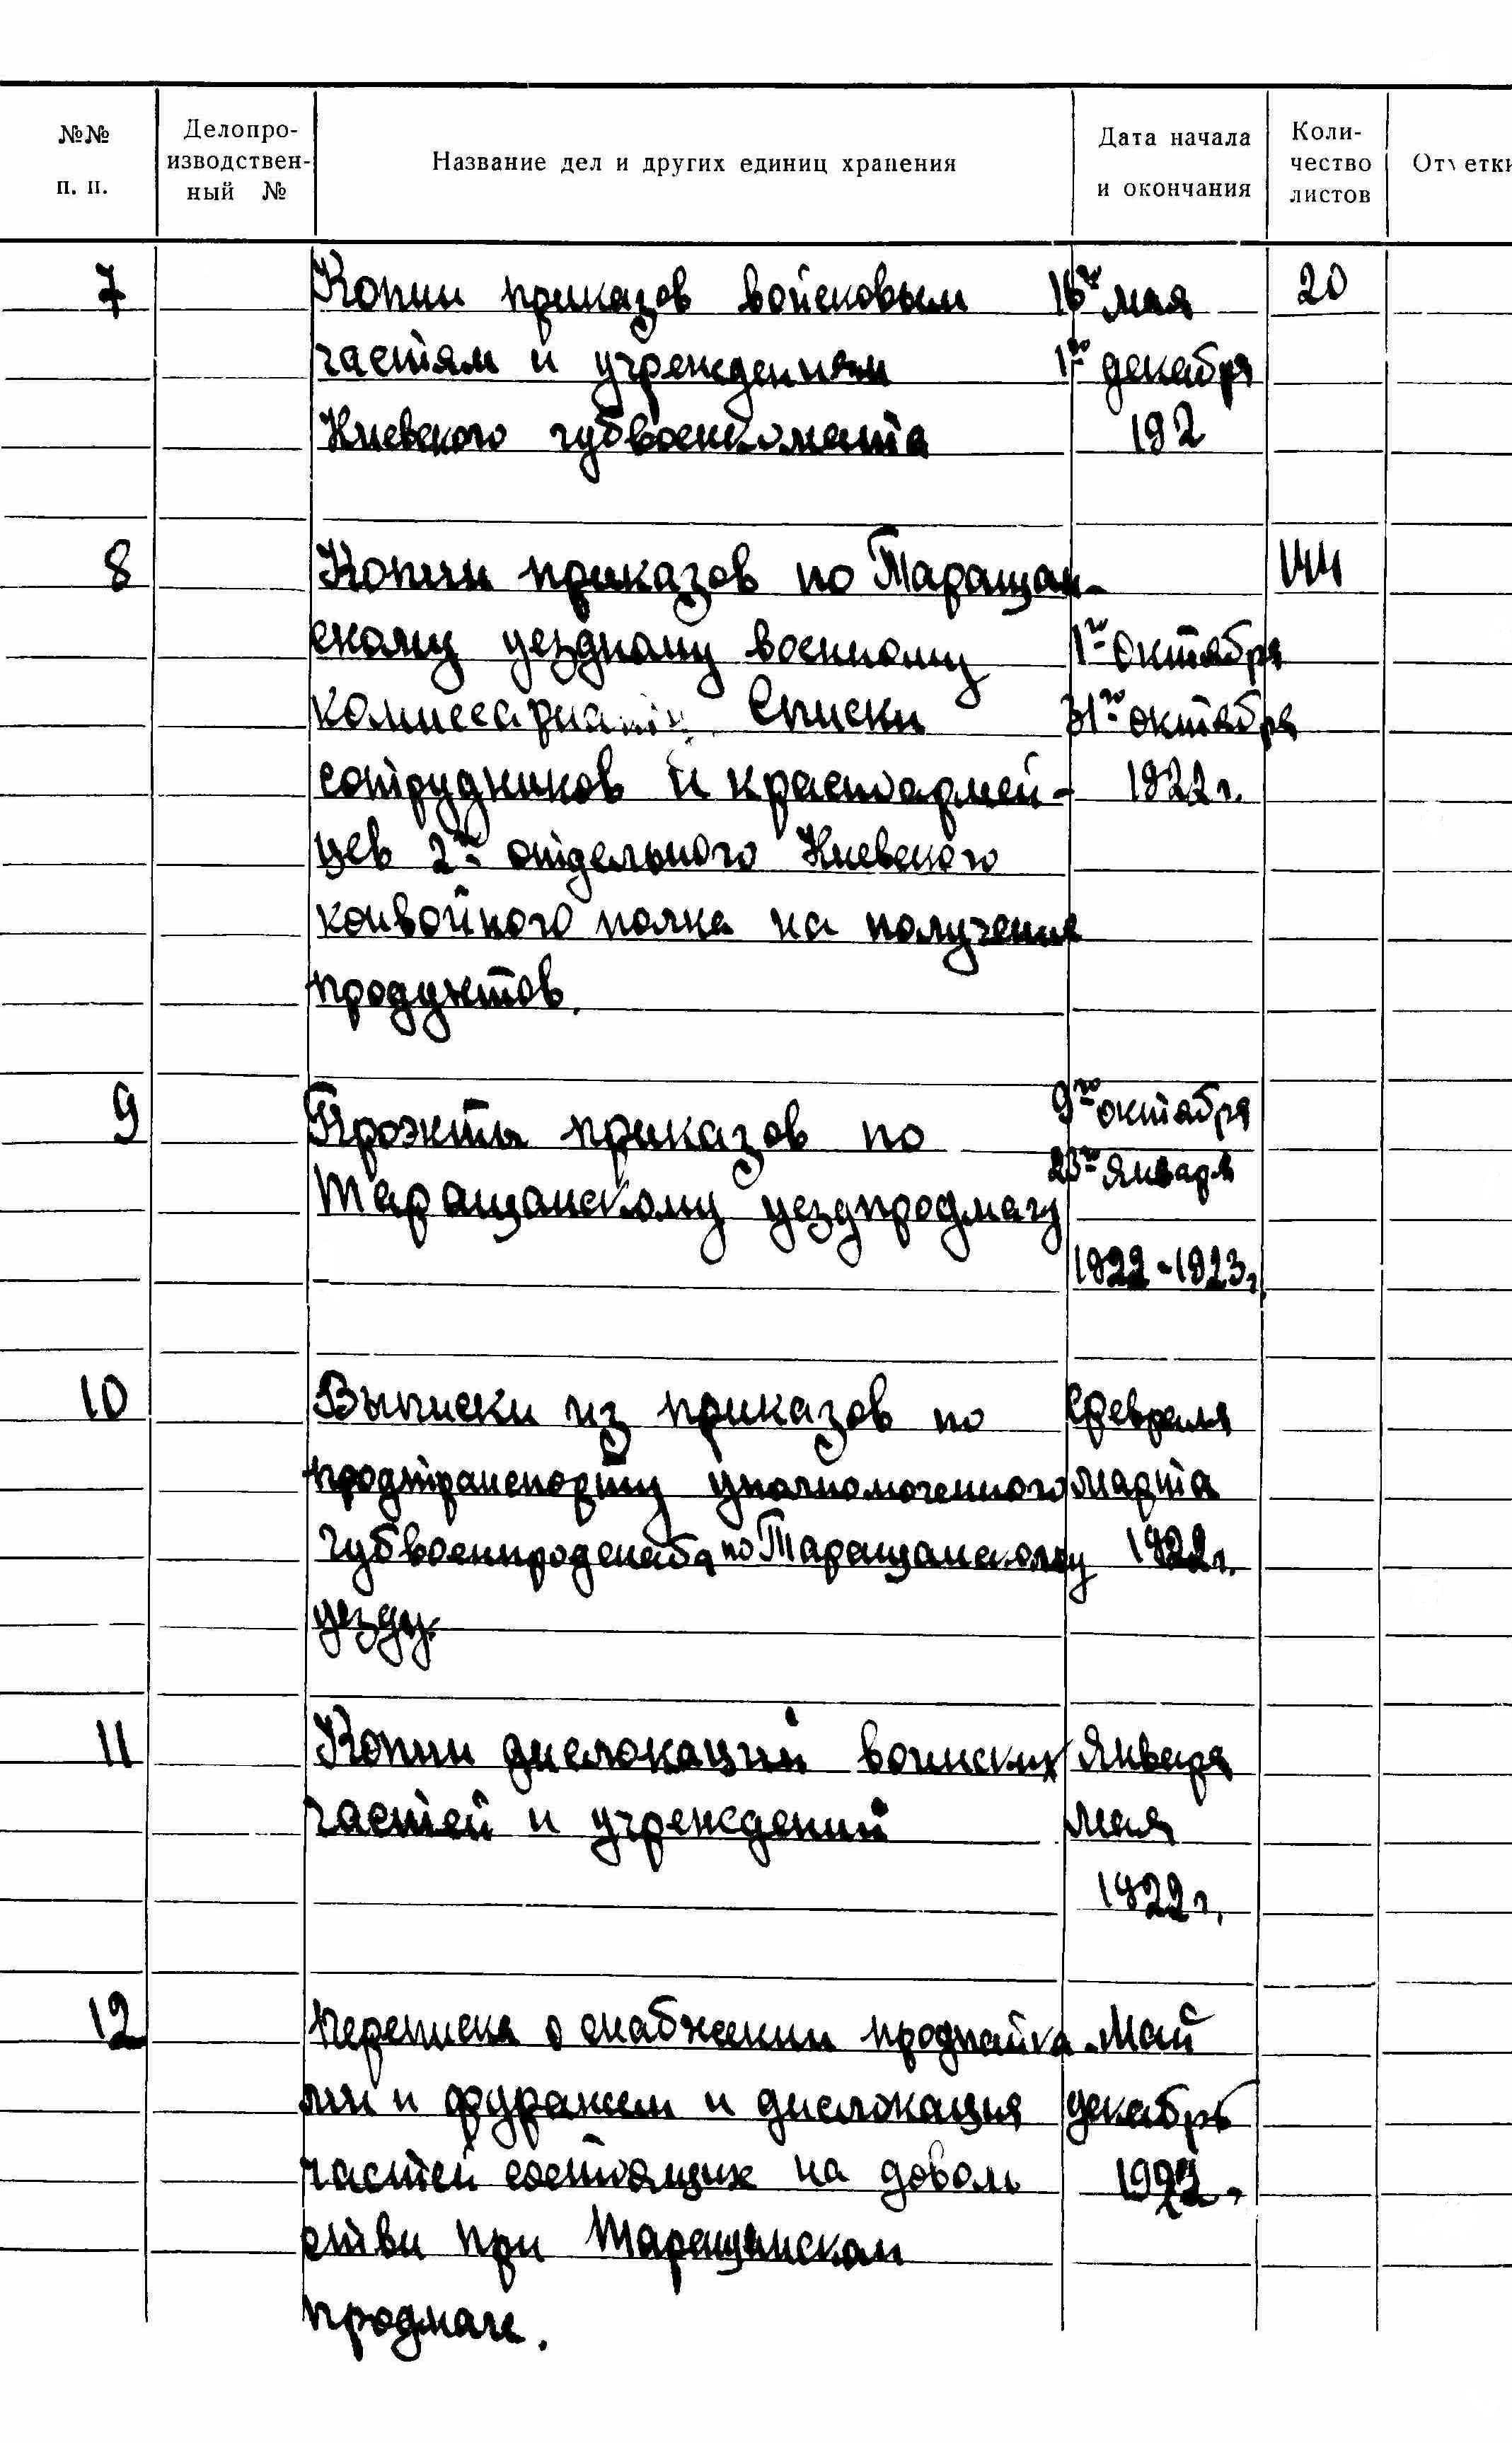 №№ п. п. Делопро-изводствен-ный № Название дел и других единиц хранения Дата начала и окончания Коли-чество листов От етки
7 Копии приказов войсковым 16го мая 20
частям и учреждениям 1го декабря
Киевского губвоенкомата 192
8 Копии приказов по Таращан- 144
скому уездному военному 1го октября
комиссариату. Списки 31го октября
сотрудников и красноармей- 1922 г.
цев 2го отдельного Киевского
конвойного полка на получение
продуктов.
9 Проэкты приказов по 9го октября
23го января
Таращанскому уездпродмагу
1922-1923 г.
10 Выписки из приказов по февраля
продтранспорту уполномоченного марта
губвоенпродснаба по Таращанскому 1922 г.
уезду.
11 Копии дислокаций воинских января
частей и учреждений мая
1922 г.
12 Переписка о снабжении продпайка- май
ми и фуражем и дислокация декабрь
частей состоящих на доволь
ствии при Таращанском
продмаге.